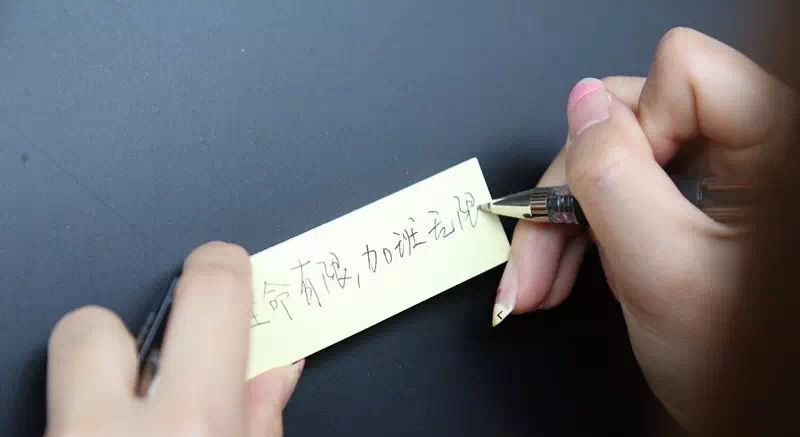 生命有限,加班无限